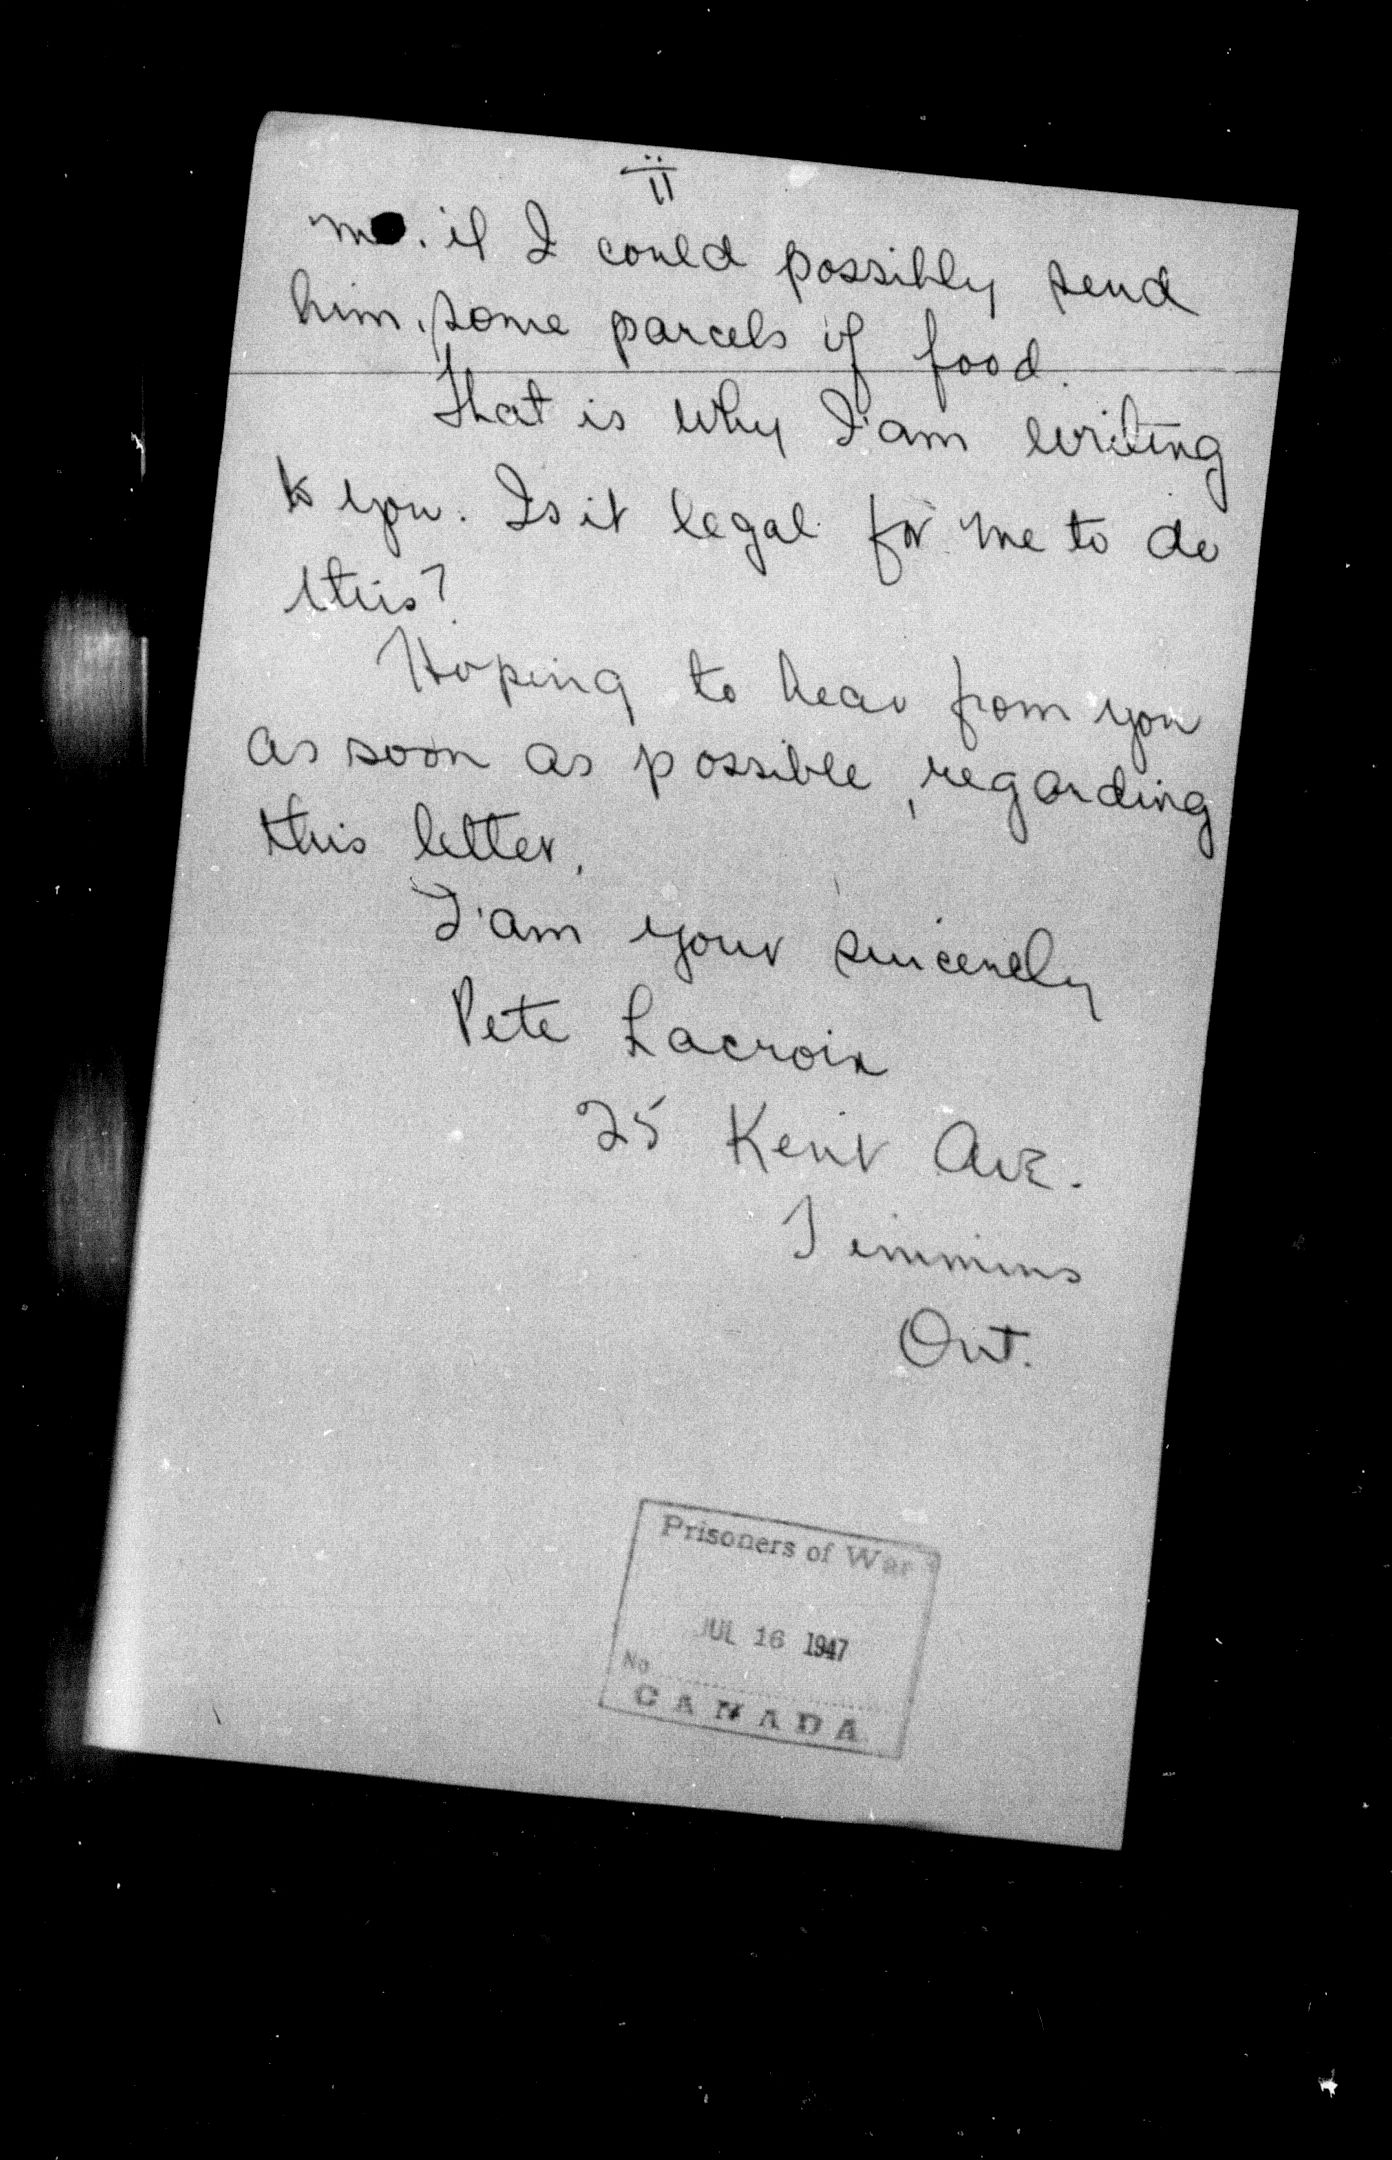 II
me. if I could possibly send
him, some parcels of food.
That is why I'am writing
to you. Is it legal for me to do
this?
Hoping to hear from you
as soon as possible, regarding
this letter.
I'am your sincerely
Pete Lacroix
25 Kent Ave.
Timmins
Ont.
Prisoners of War
JUL 16 1947
No
CANADA